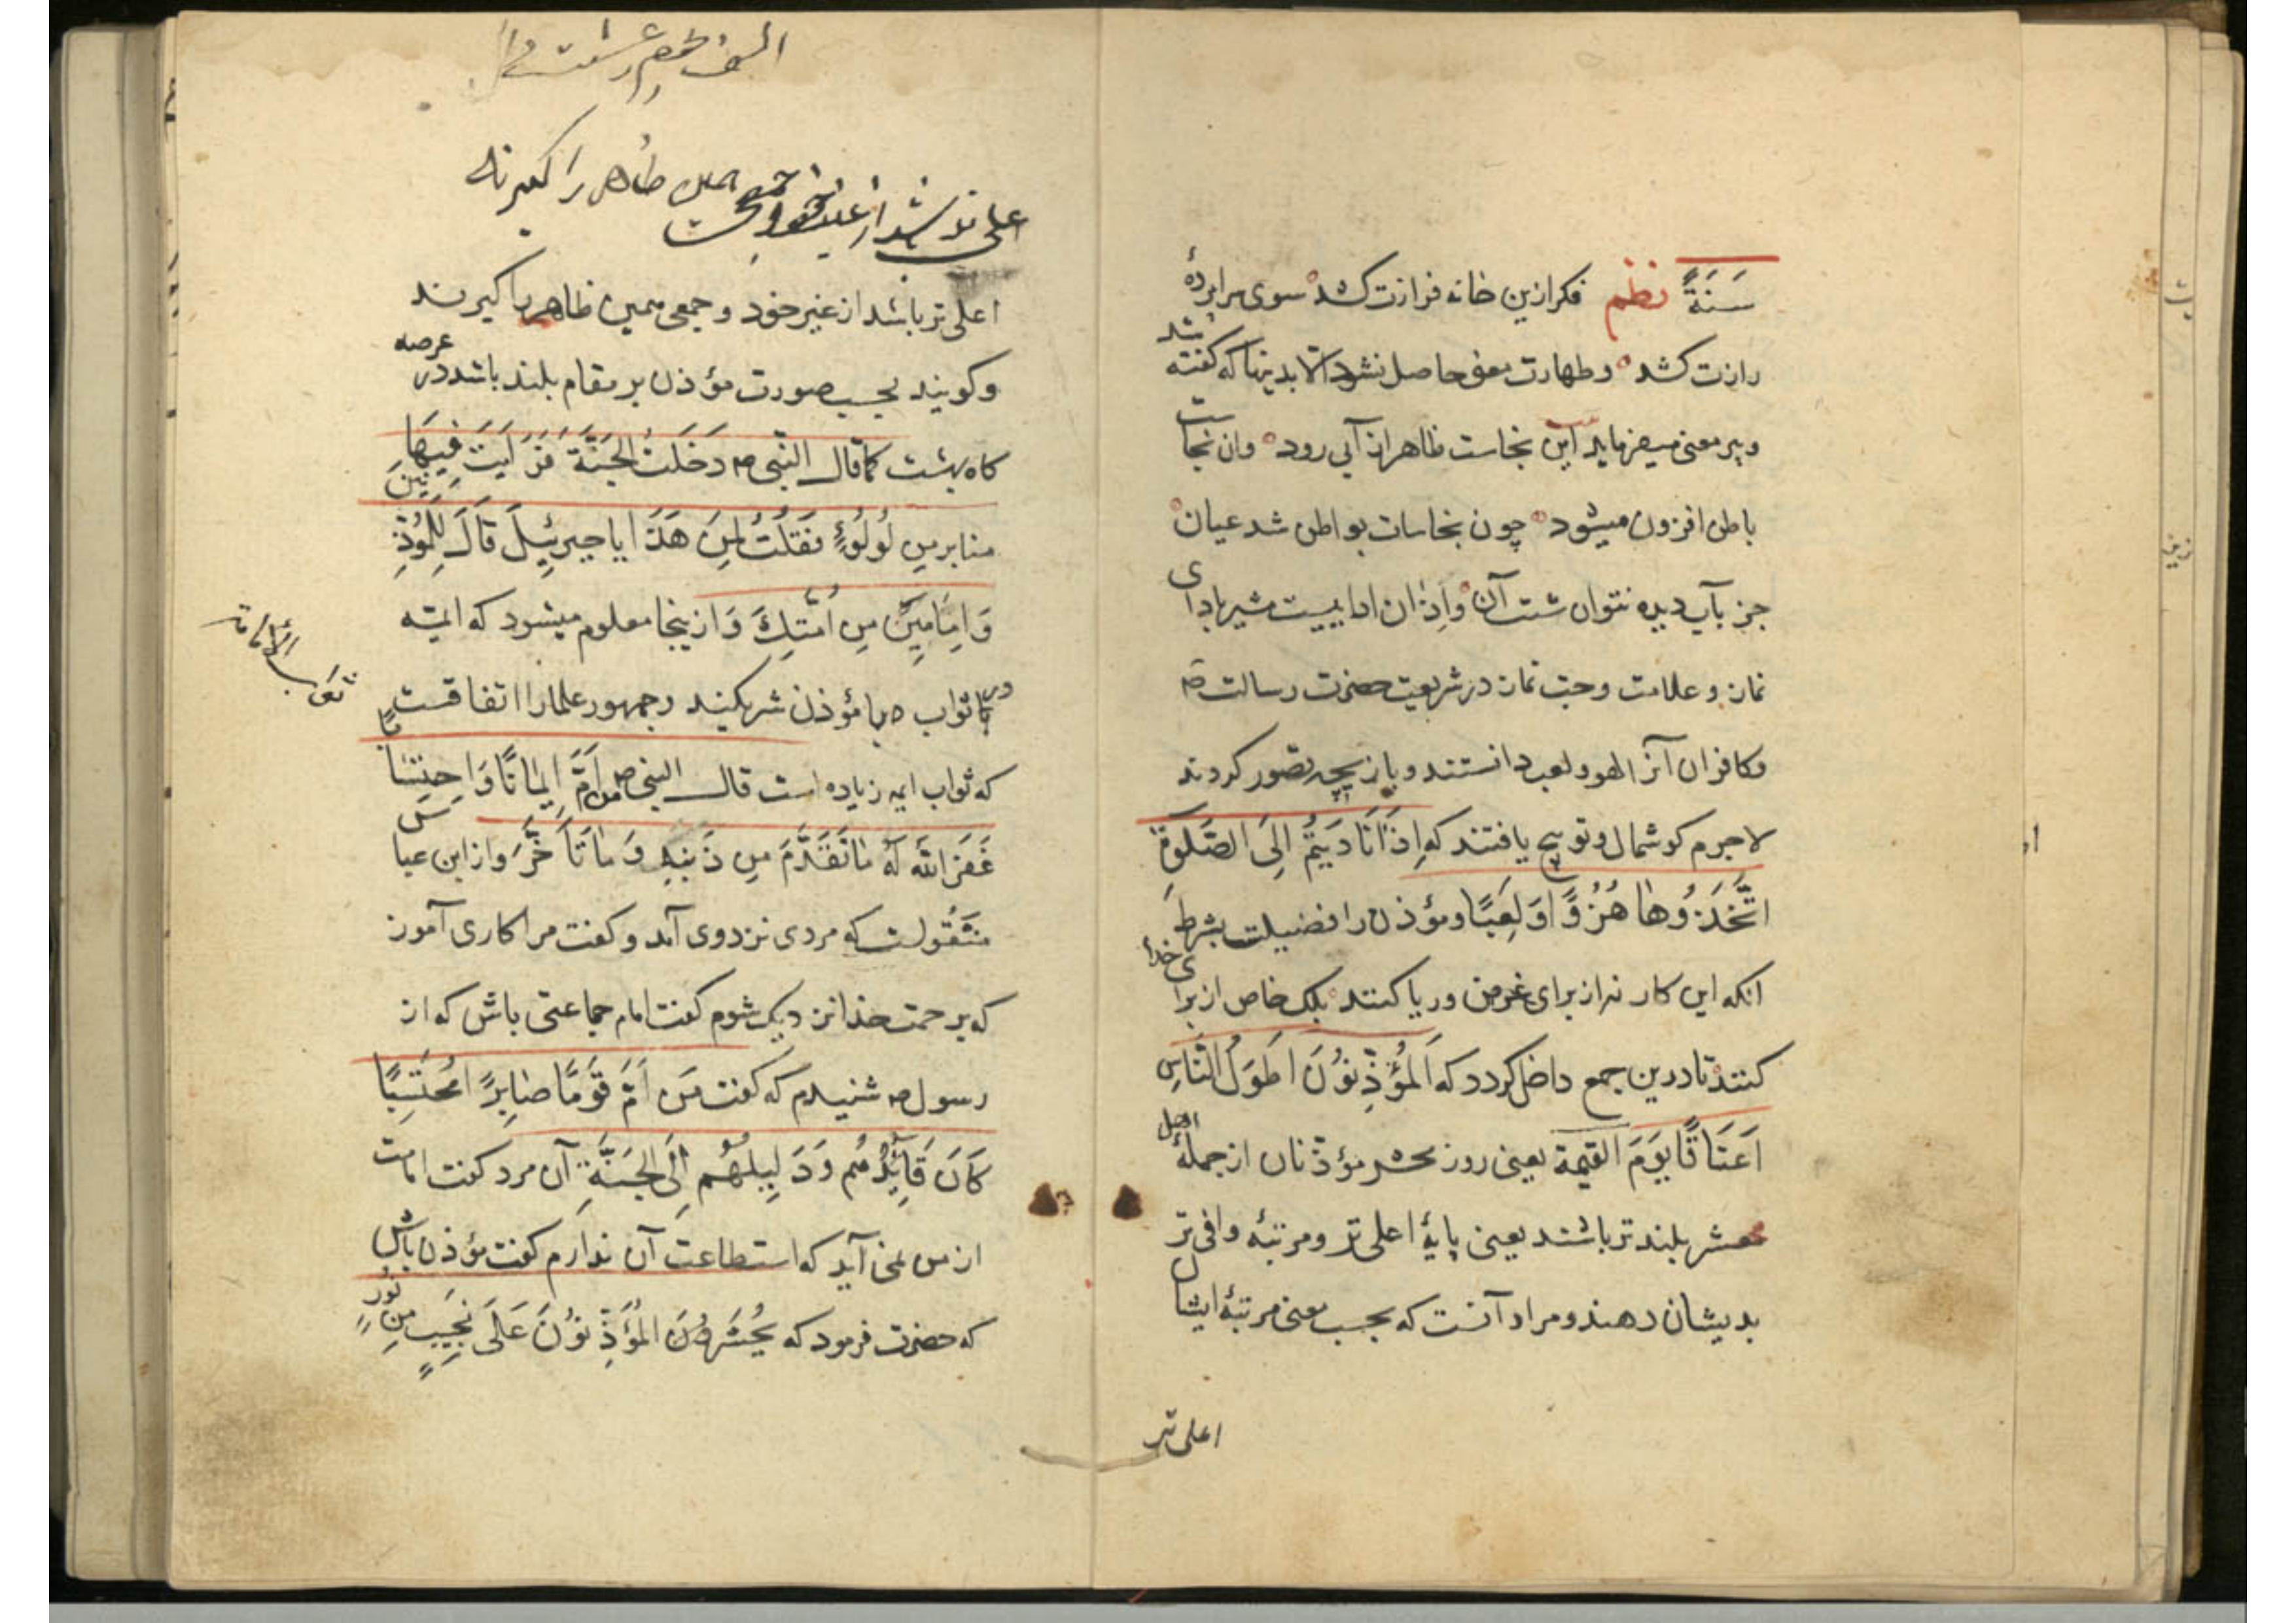 سَنَةً نظم فکر ازین خانه فرازت کشد سوی سراپردهٔ
رازت کشد و طهارت معنی حاصل نشود الا بدینها که گفته شد
و پیر معنی میفرماید این نجاست ظاهر از آبی رود وان نجاست
باطن افزون میشود چون نجاسات بواطن شد عیان
جز بآب دیده نتوان شست آن و اذان ادا ادای
نماز و علامت وحبت نماز در شریعت حضرت رسالت ص
و کافران آنرا لهو و لعب دانستند و بازیچه تصور کردند
لاجرم کوشمال و توبیخ یافتند که اِذَا نَادَیتُم اِلَی الصَّلوةِ
اتَّخَذُوهَا هُزُوًا وَلَعِبًا و مؤذن را فضیلت بشرط
انکه این کار نه از برای غرض و ریا کنند بلک خاص از برای خدا
کنند تا درین جمع داخل کردد که اَلمُؤَذِّنُونَ اَطوَلُ النَّاسِ
اَعنَاقًا یَومَ القیمة یعنی روز محشر مؤذنان از جملهٔ اهل
محشر بلند تر باشند یعنی پایهٔ اعلی تر و مرتبهٔ وافی تر
بدیشان دهند و مراد آنست که بحسب معنی مرتبهٔ ایشان
اعلی تر
اعلی تر باشد از غیر خود و جمعی همین ظاهر را کیرند
اعلی تر باشد از غیر خود و جمعی همین ظاهر را کیرند
و کویند بحسب صورت مؤذن بر مقام بلند باشد در عرصه
کاه بهشت کما قال النبی ص دَخَلتُ الجَنَّةَ فَرَاَیتَ فِیهَا
منابر من لُولُوءٍ فَقُلتُ لِمَن هَذَا یا جبرئیلَ قَالَ لِلمُؤَذِّنِینَ
وَاِمَامِینَ مِن اُمَّتِکَ و از ینجا معلوم میشود که ایمّه
در ثواب با مؤذن شریکند و جمهور علما را اتفاقست
ثواب الأمامة
که ثواب ایمه زیاده است قال النبی ص من اَمَّ اِیمَانًا وَاحتِسَابًا
غَفَرَ اللّه لَهُ مَا تَقَدَّمَ مِن ذَنبِهِ وَمَا تَاَخَّرَ و از ابن عباس
منقُولست که مردی نزد وی آمد و کفت مرا کاری آموز
که برحمت خدا نزدیک شوم کفت امام جماعتی باش که از
رسول ص شنیدم که کفت مَن اَمَّ قَومًا صَابِرًا مُحتَسِبًا
کَانَ قَائِدُهُم وَدَلِیلهُم اِلَی الجَنَّةِ آن مرد کفت امامت
از من نمی آید که استطاعت آن ندارم کفت مؤذن باش
که حضرت فرمود که یُحشَرُونَ المُؤَذِّنُونَ عَلَی نَجِیبٍ مِن نُورٍ